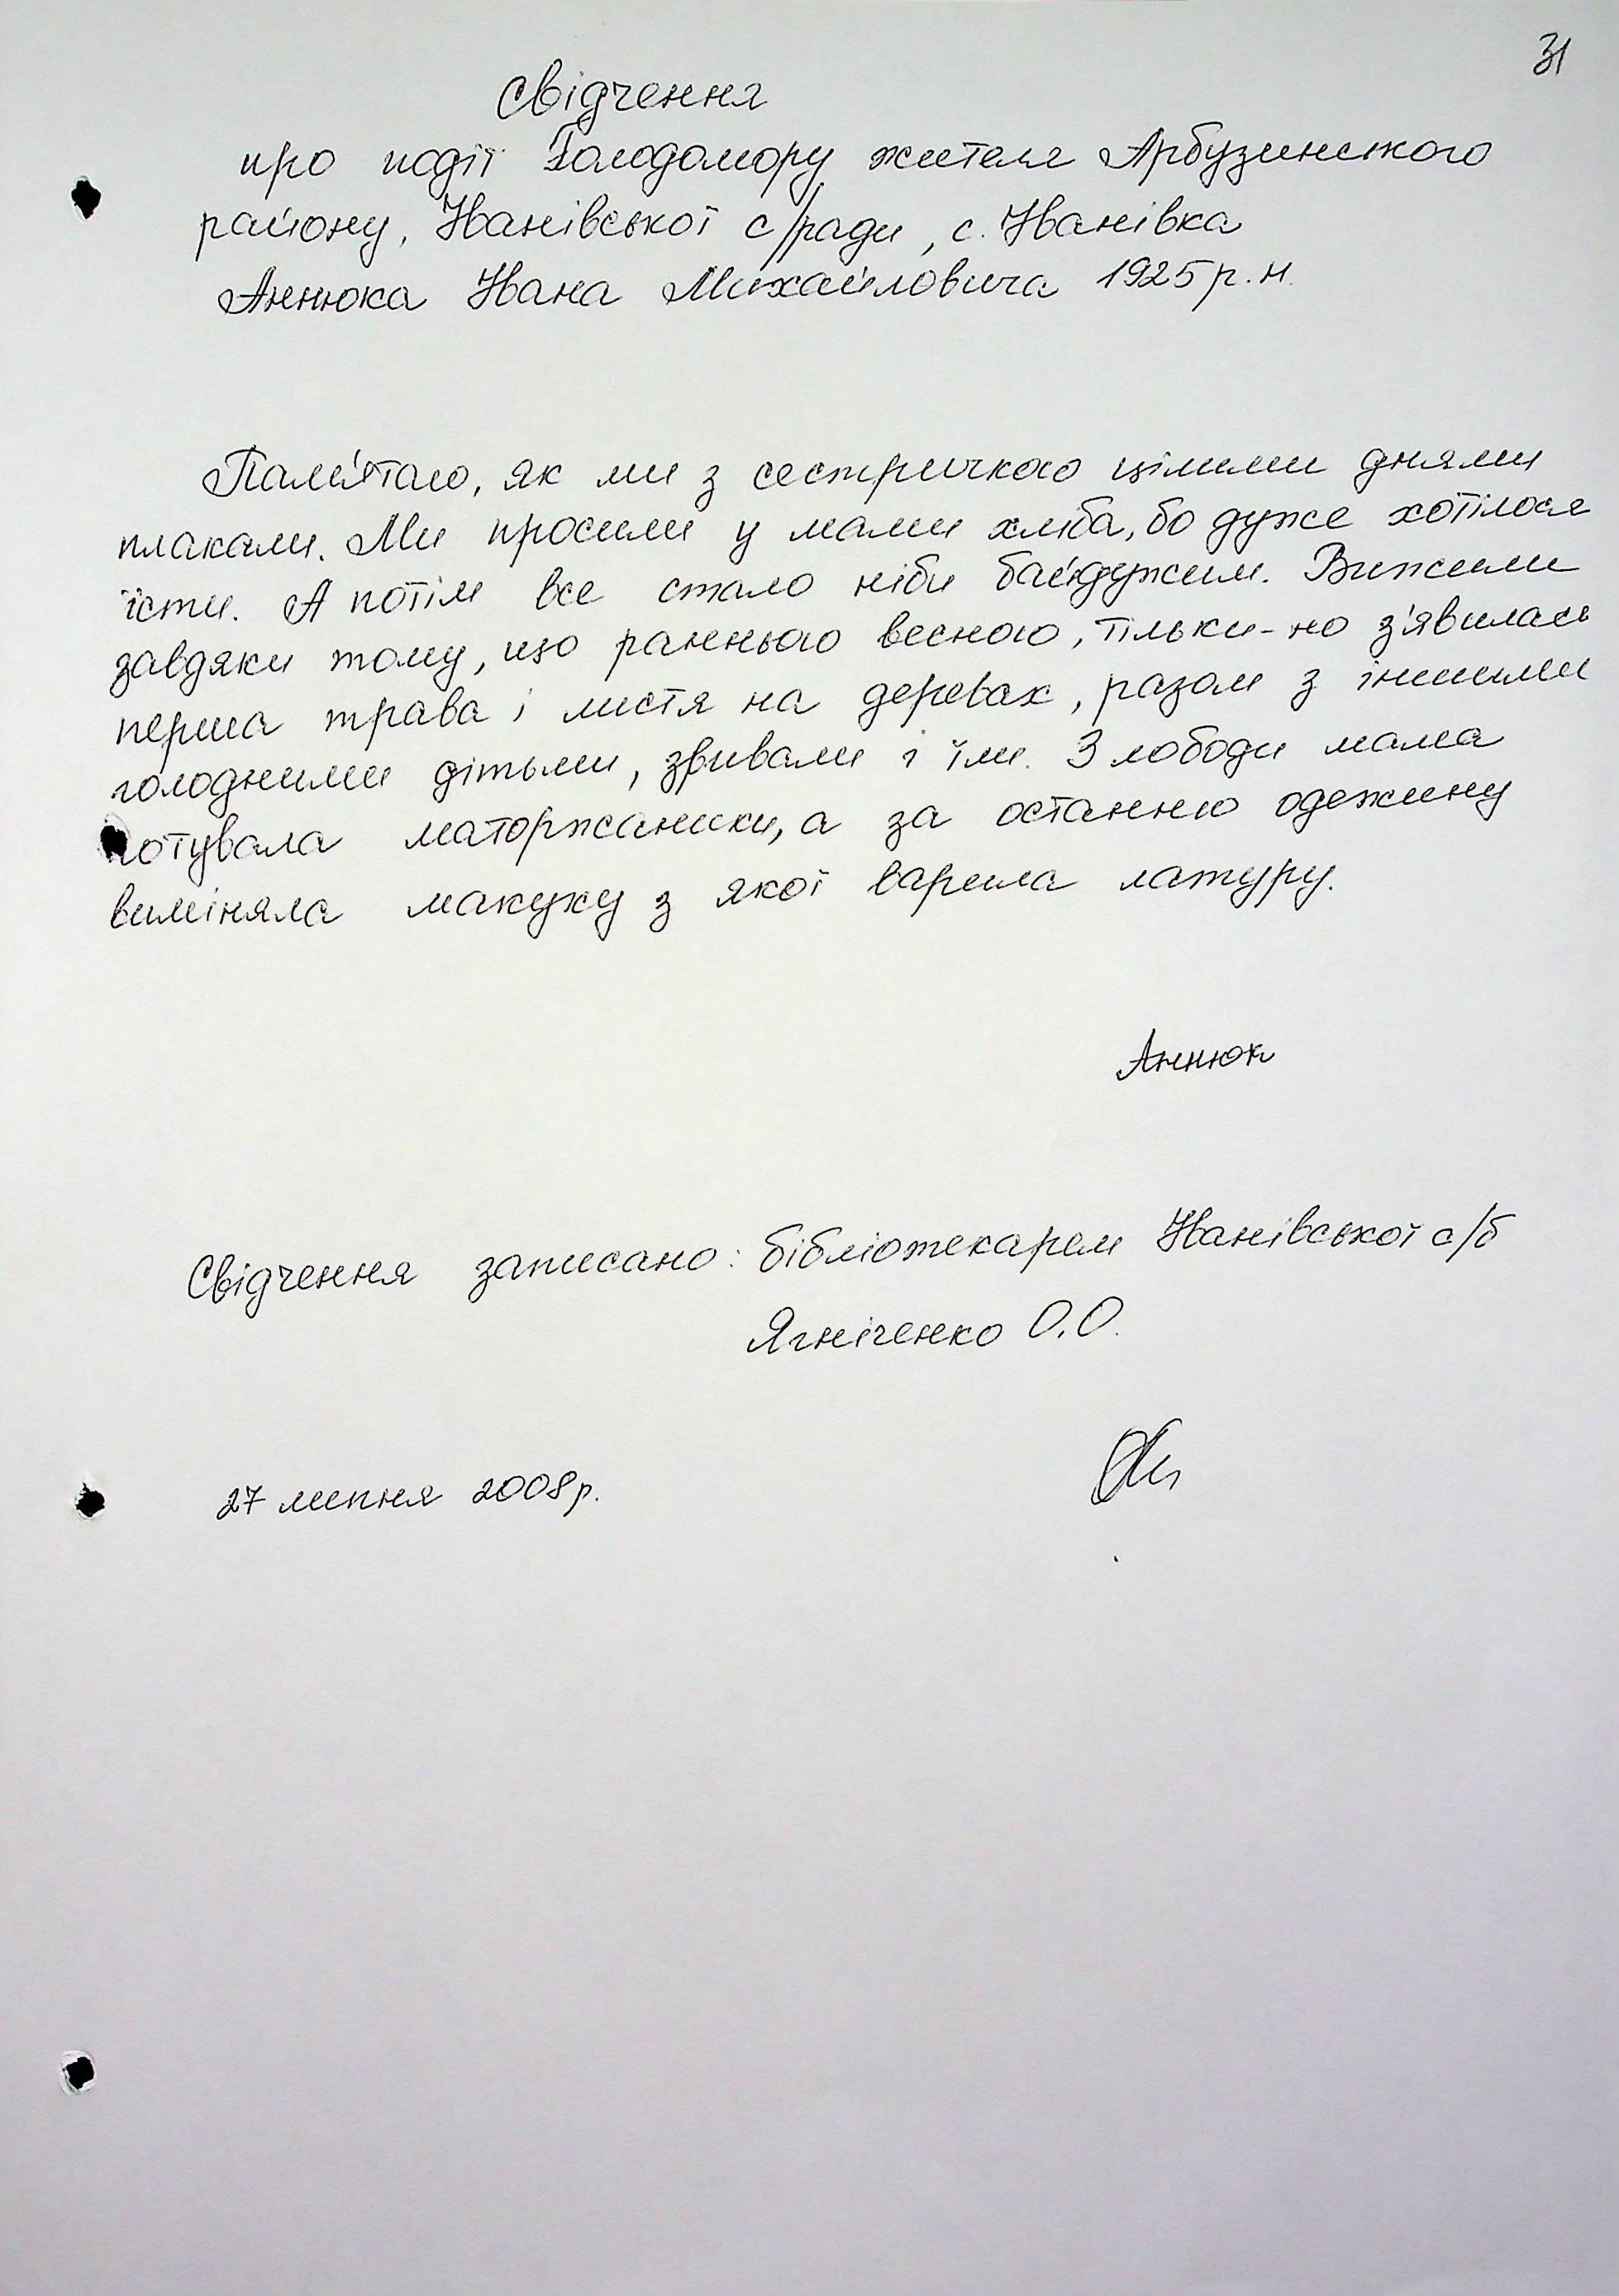 31
Свідчення
про події Голодомору жителя Арбузинського
району, Іванівської с/ради, с. Іванівка
Аннюка Івана Михайловича 1925 р.н.
Пам'ятаю, як ми з сестричкою цілими днями
плакали. Ми просили у мами хліба, бо дуже хотілося
їсти. А потім все стало ніби байдужим. Вижили
завдяки тому, що ранньою весною, тільки-но з'явилась
перша трава і листя на деревах, разом з іншими
голодними дітьми, зривали і їли. З лободи мама
готувала маторжаники, а за останню одежину
виміняла макуху з якої варила латуру.
Аннюк
Свідчення записано: бібліотекарем Іванівської с/б
Ягніченко О.О.
27 липня 2008р.